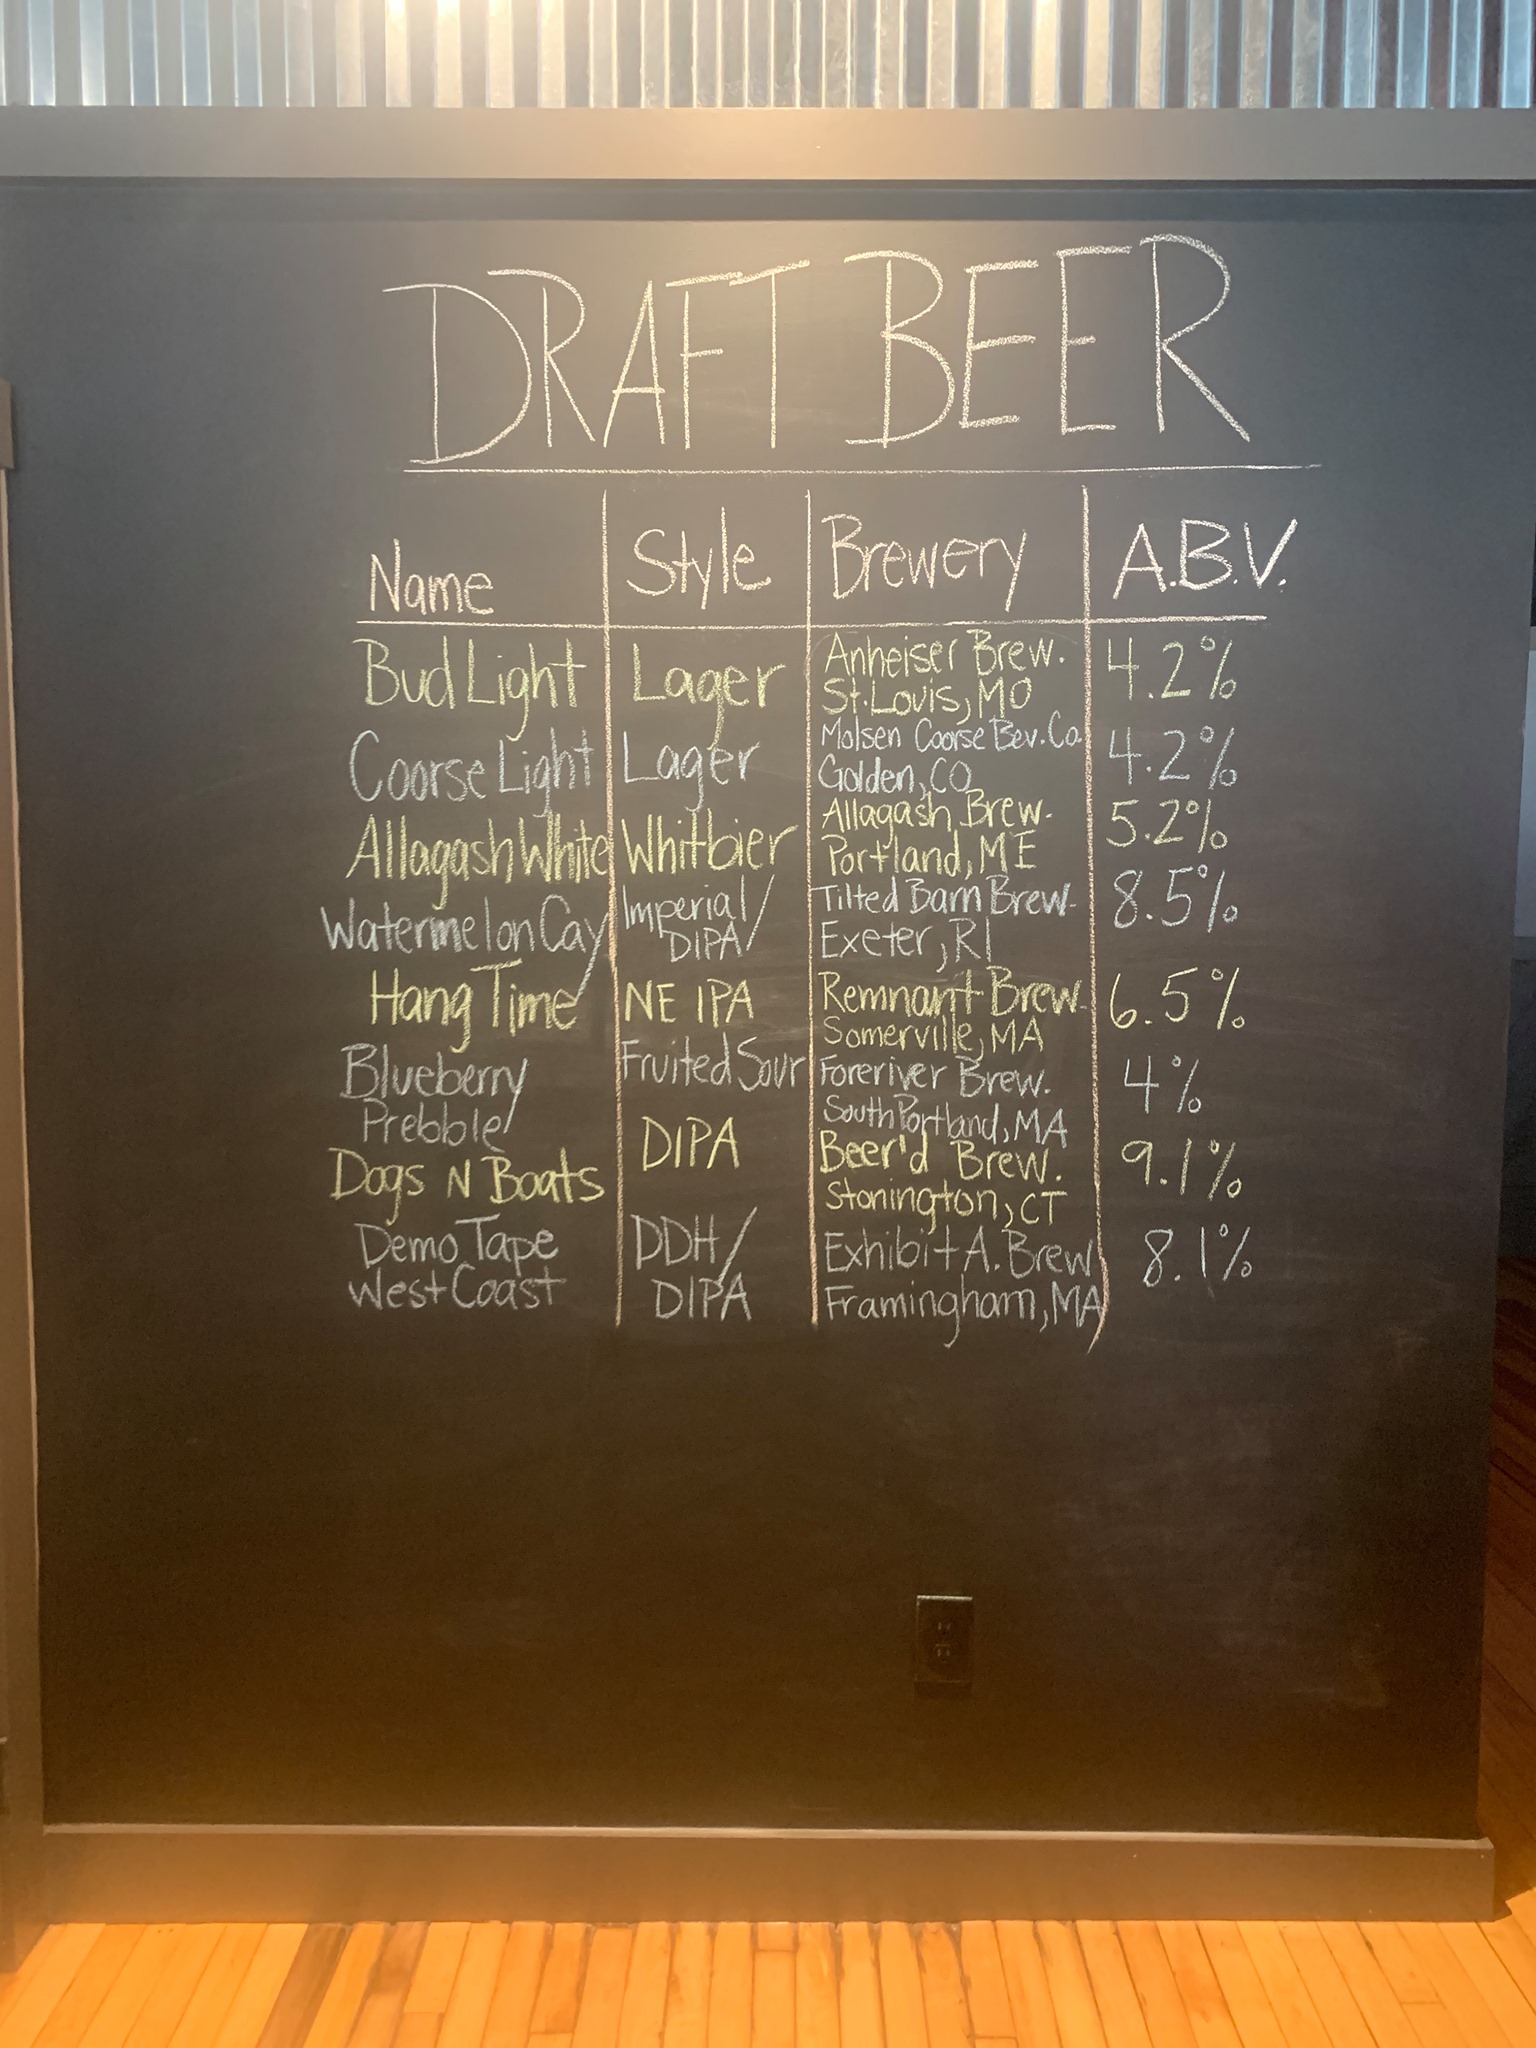 DRAFT BEER
Name Style Brewery A.B.V.
Bud Light Lager Anheiser Brew. 4.2%
St. Louis, MO
Coorse Light Lager Molsen Coorse Bev. Co. 4.2%
Golden, CO
Allagash White Whitbier Allagash Brew. 5.2%
Portland, ME
Watermelon Cay Imperial/ Tilted Barn Brew. 8.5%
DIPA/ Exeter, RI
Hang Time NE IPA Remnant Brew. 6.5%
Somerville, MA
Blueberry Fruited Sour Foreriver Brew. 4%
Prebble/ South Portland, MA
Dogs N Boats DIPA Beer'd Brew. 9.1%
Stonington, CT
Demo Tape DDH/ Exhibit A. Brew 8.1%
West Coast DIPA Framingham, MA